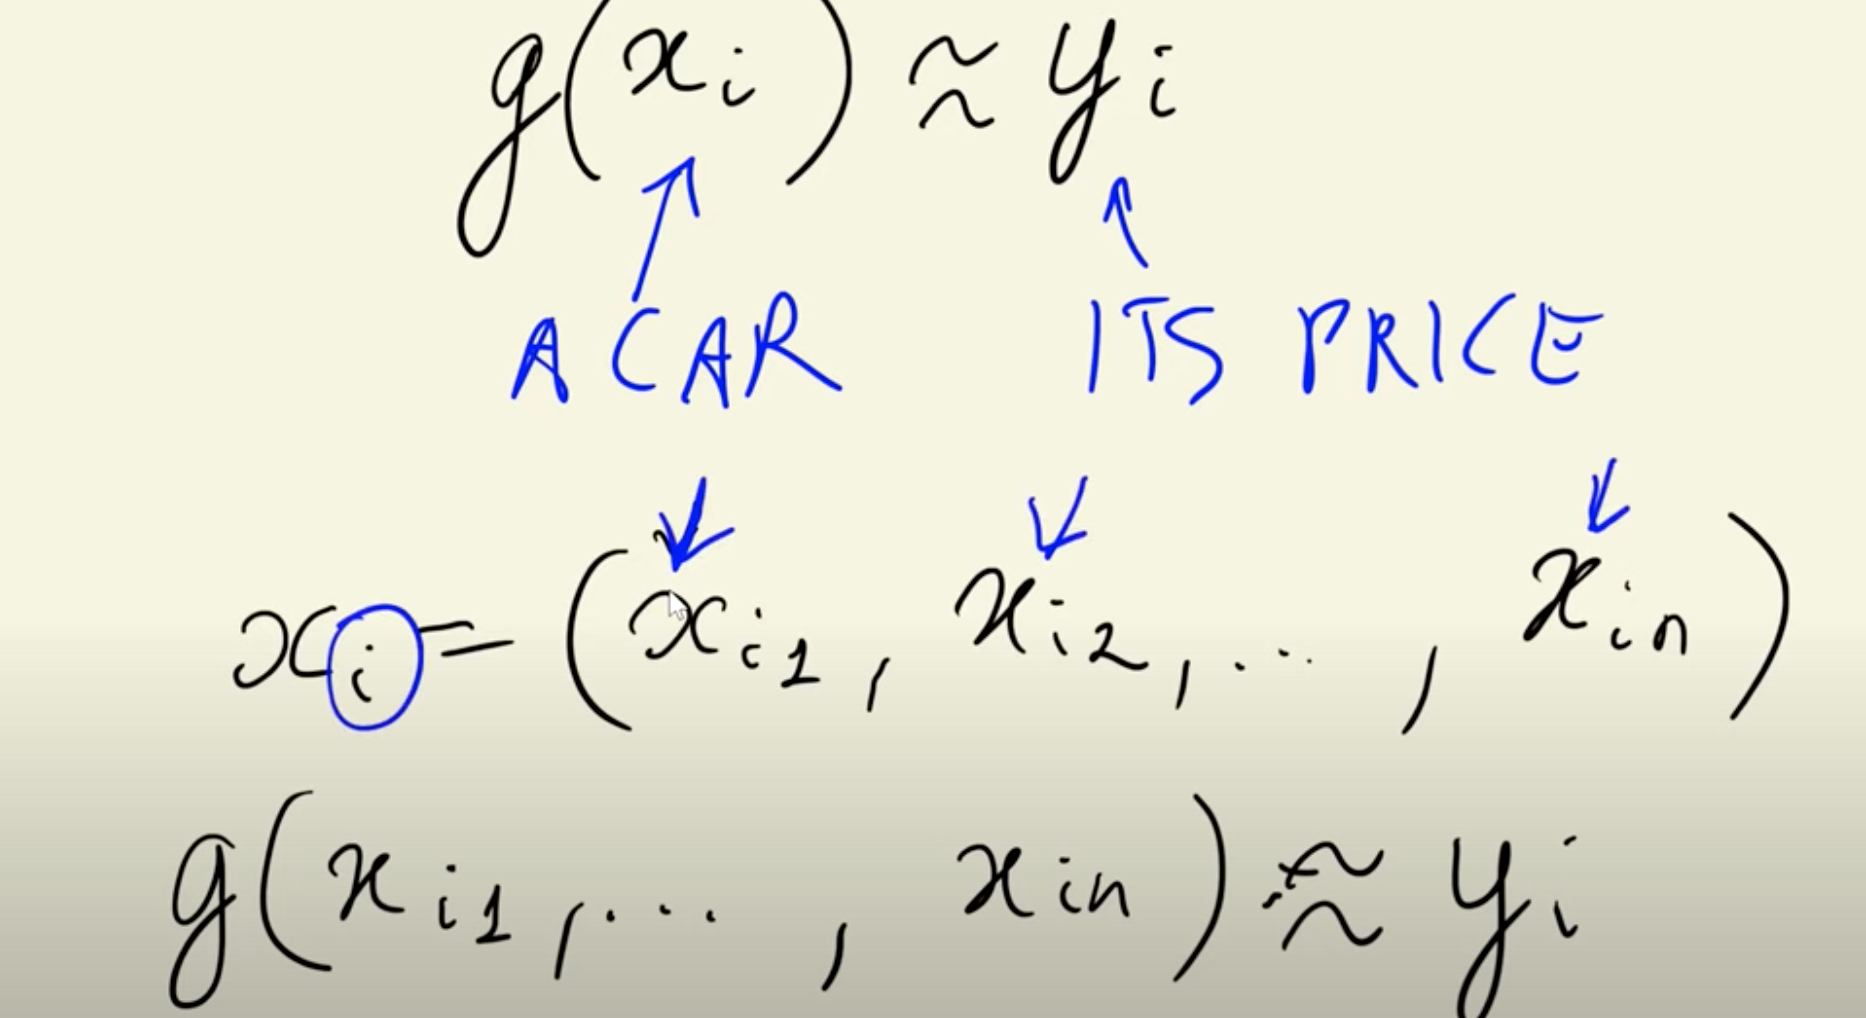 g(xᵢ) ≈ yᵢ
A CAR ITS PRICE
xᵢ = (xᵢ₁, xᵢ₂, ..., xᵢₙ)
g(xᵢ₁, ..., xᵢₙ) ≈ yᵢ